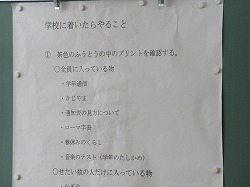 学校に着いたらやること
① 茶色のふうとうの中のプリントを確認する。
○全員に入っている物
・学年通信
・きじやま
・通知表の見方について
・ローマ字表
・春休みのくらし
・音楽のテスト（学年のたしかめ）
○せたい数の人だけに入っている物